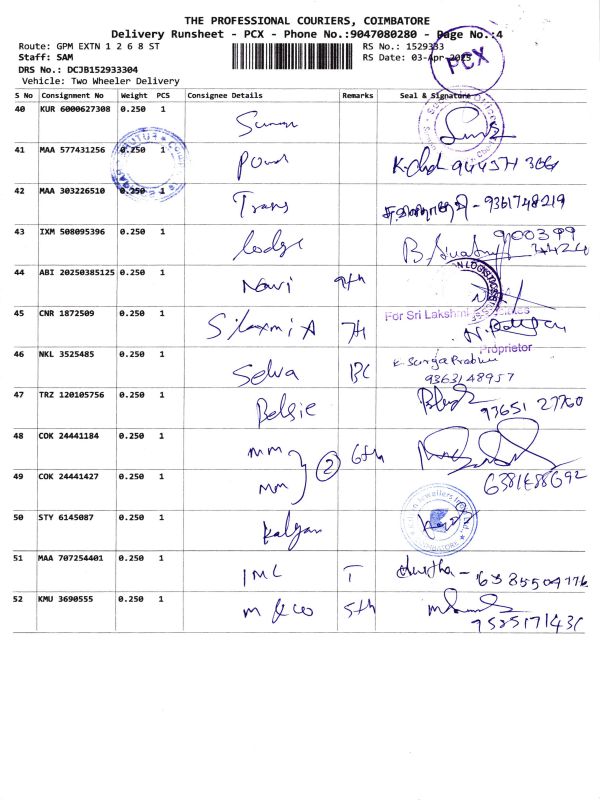 THE PROFESSIONAL COURIERS, COIMBATORE
Delivery Runsheet - PCX - Phone No.:9047080280 - Page No.:4
Route: GPM EXTN 1 2 6 8 ST
RS No.: 1529333
Staff: SAM
RS Date: 03-Apr-2025
PCX
DRS No.: DCJB152933304
Vehicle: Two Wheeler Delivery
S No Consignment No Weight PCS Consignee Details Remarks Seal & Signature
40 KUR 6000627308 0.250 1
41 MAA 577431256 0.250 1
42 MAA 303226510 0.250 1 Trans - 9361748219
43 IXM 508095396 0.250 1 lodge
44 ABI 20250385125 0.250 1 Navi 9th
45 CNR 1872509 0.250 1
For Sri Lakshmi
Proprietor
46 NKL 3525485 0.250 1 Selva BC K Surya Prabhu
9363148957
47 TRZ 120105756 0.250 1 Belgie 93651 27760
48 COK 24441184 0.250 1 mm 2 6th
49 COK 24441427 0.250 1 mm
50 STY 6145087 0.250 1 Kalyan
51 MAA 707254401 0.250 1 IMC T
52 KMU 3690555 0.250 1 m & co 5th